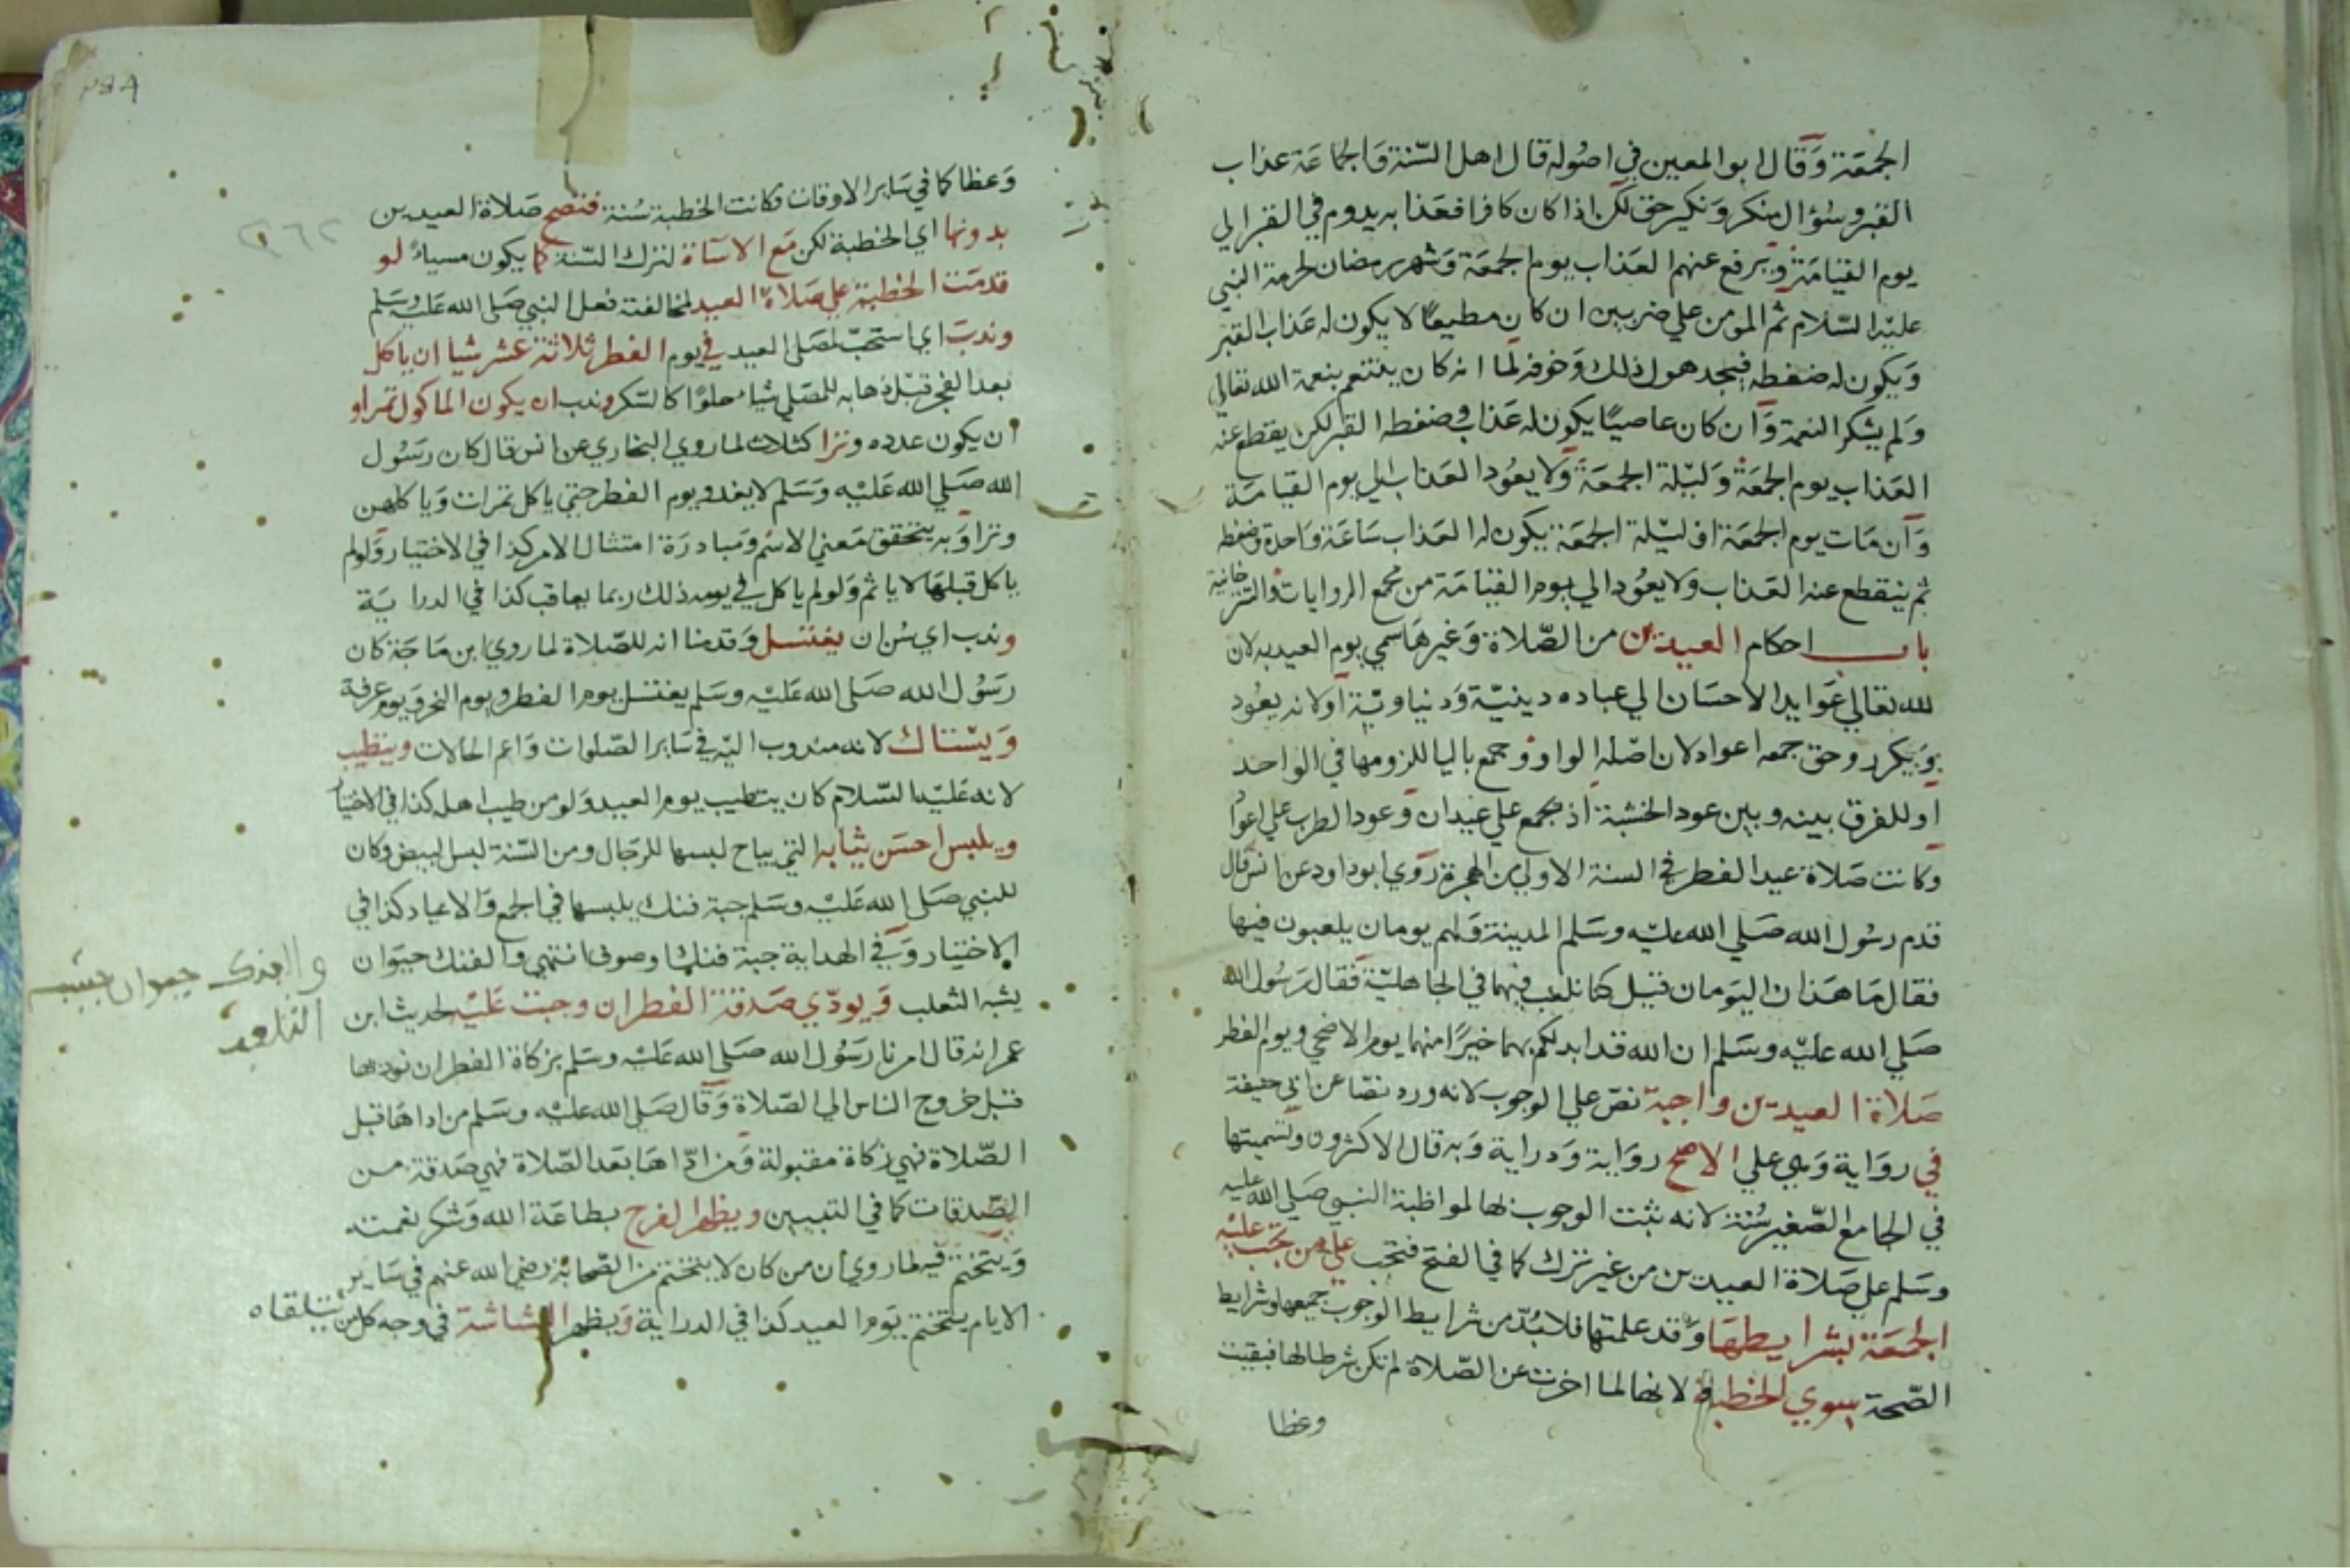 الجمعة وقال ابو المعين في اصوله قال اهل السنة والجماعة عذاب
القبر وسؤال منكر ونكير حق لكن اذا كان كافرا فعذابه يدوم في القبر الي
يوم القيامة ويرفع عنهم العذاب يوم الجمعة وشهر رمضان لحرمة النبي
عليه السلام ثم المومن علي ضربين ان كان مطيعا لا يكون له عذاب القبر
ويكون له ضغطه فيجد هول ذلك وخوفه لما انه كان يتنعم بنعمة الله تعالي
ولم يشكر النعمة وان كان عاصيا يكون له عذاب وضغطه القبر لكن يقطع عنه
العذاب يوم الجمعة وليلة الجمعة ولا يعود العذاب الي يوم القيامة
وان مات يوم الجمعة او ليلة الجمعة يكون له العذاب ساعة واحدة وضغطه
ثم ينقطع عنه العذاب ولا يعود الي يوم القيامة من مجمع الروايات والتترخانية
باب احكام العيدين من الصلاة وغيرها سمي يوم العيد به لان
لله تعالي عوايد الاحسان الي عباده دينية ودنياوية اولانه يعود
ويتكرر وحق جمعه اعواد لان اصله الواو وجمع باليا للزومها في الواحد
او للفرق بينه وبين عود الخشبة اذ يجمع علي عيدان وعود الطرب علي اعوا
وكانت صلاة عيد الفطر في السنة الاولي من الهجرة روي ابوداود عن انس قال
قدم رسول الله صلي الله عليه وسلم المدينة ولهم يومان يلعبون فيها
فقال ما هذان اليومان قيل كنا نلعب فيهما في الجاهلية فقال رسول الله
صلي الله عليه وسلم ان الله قد ابدلكم بهما خيرا منهما يوم الاضحي ويوم الفطر
صلاة العيدين واجبة نص علي الوجوب لانه ورد نصا عن ابي حنيفة
في رواية وهي علي الاصح رواية ودراية وبه قال الاكثرون وتسميتها
في الجامع الصغير سنة لانه ثبت الوجوب بها لمواظبة النبي صلي الله عليه
وسلم علي صلاة العيدين من غير ترك كما في الفتح فتجب علي من تجب عليه
الجمعة بشرايطها وقد علمتها فلا بد من شرايط الوجوب جميعها وشرايط
الصحة سوي الخطبة لانها لما اخرت عن الصلاة لم تكن شرطا لها فبقيت
وعظا
وعظا كما في ساير الاوقات فكانت الخطبة سنة فتصح صلاة العيدين
بدونها اي الخطبة لكن مع الاساة لترك السنة كما يكون مسياء لو
قدمت الخطبة علي صلاة العيد لمخالفته فعل النبي صلي الله عليه وسلم
وندب اي استحب لمصلي العيد في يوم الفطر ثلاثة عشر شيا ان ياكل
بعد الفجر قبل ذهابه للمصلي شياء حلوا كالسكر وندب ان يكون الماكول تمرا و
ان يكون عدده وترا كثلاث لما روي البخاري عن انس قال كان رسول
الله صلي الله عليه وسلم لا يغدو يوم الفطر حتي ياكل تمرات وياكلهن
وترا وبه يتحقق معني الاسم ومبادرة امتثال الامر كذا في الاختيار ولو لم
ياكل قبلها لا ياثم ولو لم ياكل في يومه ذلك ربما يعاقب كذا في الدراية
وندب اي سن ان يغتسل وقدمنا انه للصلاة لما روي ابن ماجة كان
رسول الله صلي الله عليه وسلم يغتسل يوم الفطر ويوم النحر ويوم عرفة
ويستاك لانه مندوب اليه في ساير الصلوات واعم الحالات ويتطيب
لانه عليه السلام كان يتطيب يوم العيد ولو من طيب اهله كذا في الاختيار
ويلبس احسن ثيابه التي يباح لبسها للرجال ومن السنة لبس البيض وكان
للنبي صلي الله عليه وسلم جبة فنك يلبسها في الجمع والاعياد كذا في
الاختيار وفي الهداية جبة فنك اوصوف انتهي والفنك حيوان
يشبه الثعلب ويودي صدقة الفطر ان وجبت عليه لحديث ابن
عمر انه قال امرنا رسول الله صلي الله عليه وسلم بزكاة الفطر ان نوديها
قبل خروج الناس الي الصلاة وقال صلي الله عليه وسلم من اداها قبل
الصلاة فهي زكاة مقبولة ومن اداها بعد الصلاة فهي صدقة من
الصدقات كما في التبيين ويظهر الفرح بطاعة الله وشكر نعمته
ويتختم فيه لما روي ان من كان لا يتختم من الصحابة رضي الله عنهم في ساير
الايام يتختم يوم العيد كذا في الدراية ويظهر البشاشة في وجه كل من يتلقاه
والفنك حيوان يشبه
٢٦٢